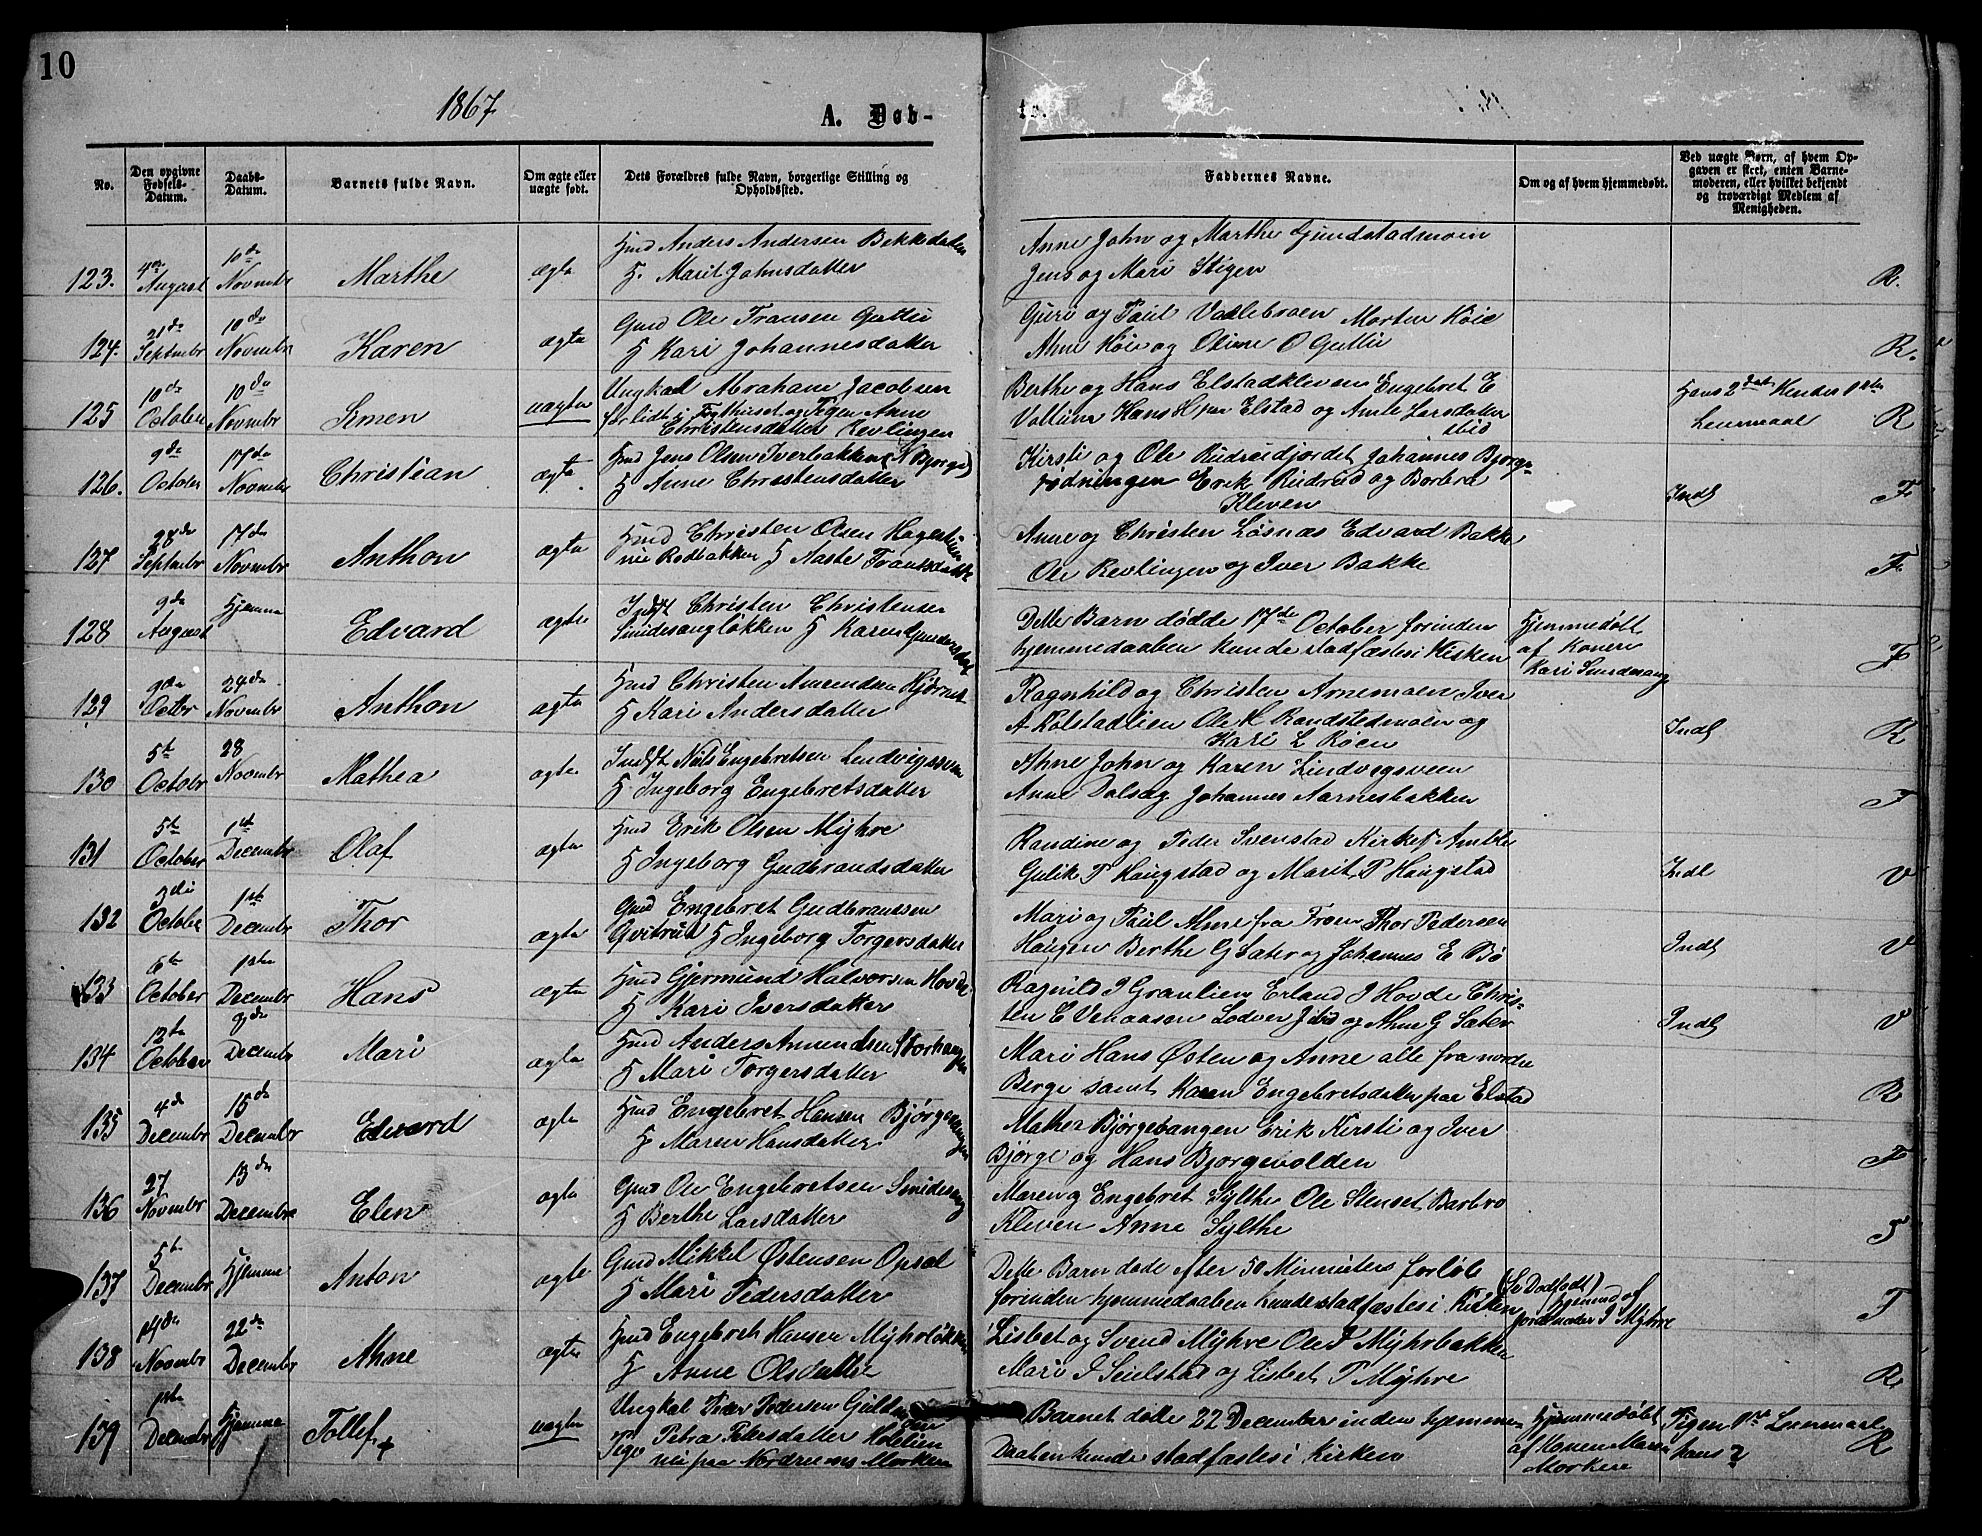 10
1867
A. Døb-
te.
No.
Den opgivne Fødsels-Datum.
Daabs-Datum.
Barnets fulde Navn.
Om ægte eller uægte født.
Dets Forældres fulde Navn, borgerlige Stilling og Opholdssted.
Faddernes Navne.
Om og af hvem hjemmedøbt.
Ved uægte Børn, af hvem Op-
gaven er skeet, enten Barne-
moderen, eller hvilket bekjendt
og troværdigt Medlem af
Menigheden.
123. 4de August 10de Novembr Marthe ægte Hmd Anders Andersen Bekkedalen
H. Marit Johnsdatter
Anne John og Marthe
Jens og Mari Stigen R.
124. 21de Septembr 10de Novembr Karen ægte Gmd Ole Fransen
H Kari Johannesdatter
Guri og Paul Morten Höie
Ahne Höie og Oline O R.
125 10de October 10de Novembr Simen uægte Ungkarl Abraham Jacobsen
Anne
Christensdatter Revlingen
Berthe og Hans Elstadkleven Engebret E
Hans H paa Elstad og Larsdatter
ibid
Hans 2det Hendes 1ste
Leiermaal R
126. 9de October 17de Novembr Christian ægte Hmd Jens Olsen Iverbakken (N Bjørge)
H Anne Christensdatter
Kirsti og Ole Rudrudjordet Johannes Bjorge-
rødningen Erik Rudrud og Borbra
Kleven
Indl F
127 28de Septembr 17de Novembr Anthon ægte Hmd Christen Olsen
Rodbakken H Fransdatter
Anne og Christen Løsnæs Edvard Bakke
Ole Revlingen og Iver Bakke F
128 9de August Hjemme Edvard ægte Indst Christen Christensen
H Karen
Dette Barn dødde 17de October forinden
hjemmedaaben kunde stadfæstes i Kirken
Hjemmedøbt
af Konen
Kari F
129 9de Octbr 24de Novembr Anthon ægte Hmd Christen Amundsen
H Kari Andersdatter
Ragnhild og Christen Arnemoen Iver
A Kolstadlien Ole H og
Kari L Röen
Indl R
130 5te Octobr 28 Novembr Mathea ægte Indst Nils Engebretsen
H Ingeborg Engebretsdatter
Ahne John og Karen Lindvigsveen
Anne Dalsæg Johannes F
131 5te October 1ste Decembr Olaf ægte Hmd Erik Olsen Myhre
H Ingeborg Gudbrandsdatter
Randine og Peder Svenstad
Gulik P Haugstad og Marit P Haugstad
Indl V
132 3die October 1ste Decembr Thor ægte Gmd Engebret Gudbranssen
H Ingeborg Torgersdatter
Mari og Paul Ahne fra Froen Thor Pedersen
Haugen Berthe G Sæter og Johannes E Bö
Indl V
133 6te October 1ste Decembr Hans ægte Hmd Gjermund Halvorsen Hovde
H Kari Iversdatter
Ragnild I Graulien Erland I Hovde Chris-
ten E Lodver ibid og Ahne G Sæter
Indl V
134 12te October Decembr Mari ægte Hmd Anders Amundsen Storhaugen
H Mari Torgersdatter
Mari Hans Østen og Anne alle fra nordre
Berge samt Karen Engebretsdatter paa Elstad R
135 4de Decembr 15de Decembr Edvard ægte Hmd Engebret Hansen
H Maren Hansdatter
Mathea Bjørgebangen Erik Kirsti og Iver
Bjørge og Hans Bjorgevolden F
136 27 Novembr 13de Decembr Elen ægte Gmd Ole Engebretsen
H Berthe Larsdatter
Maren og Engebret Sylthe Ole Stenset Barbro
Kleven Anne Sylthe F
137 5te Decembr Hjemme Anton ægte Gmd Mikkel Østensen Opsal
H Mari Pedersdatter
Dette Barn døde efter 50 Minuters forløb
forinden hjemmedaaben kunde stadfæstes i Kirken
(Se Dødfødt)
hjemmd af
Jordmoder I Myhre F
138 14de Novembr 22de Decembr Ahne ægte Hmd Engebret Hansen Myhrløkken
H Anne Olsdatter
Lisbet og Svend Myhre Ole P Myhrbakken
Mari I Seielstad og Lisbet P Myhre R
139 1ste Decembr Hjemme Tollef uægte Ungkal Iver Pedersen
Pige Petra Petersdatter Holslien
nu paa Nordre Morken
Barnet døde 22 December inden hjemme-
Daaben kunde stadfæstes i Kirken
Hjemmedøbt
af Konen Maren
Morken
Pigen 1ste Leiermaal
hans 2 R